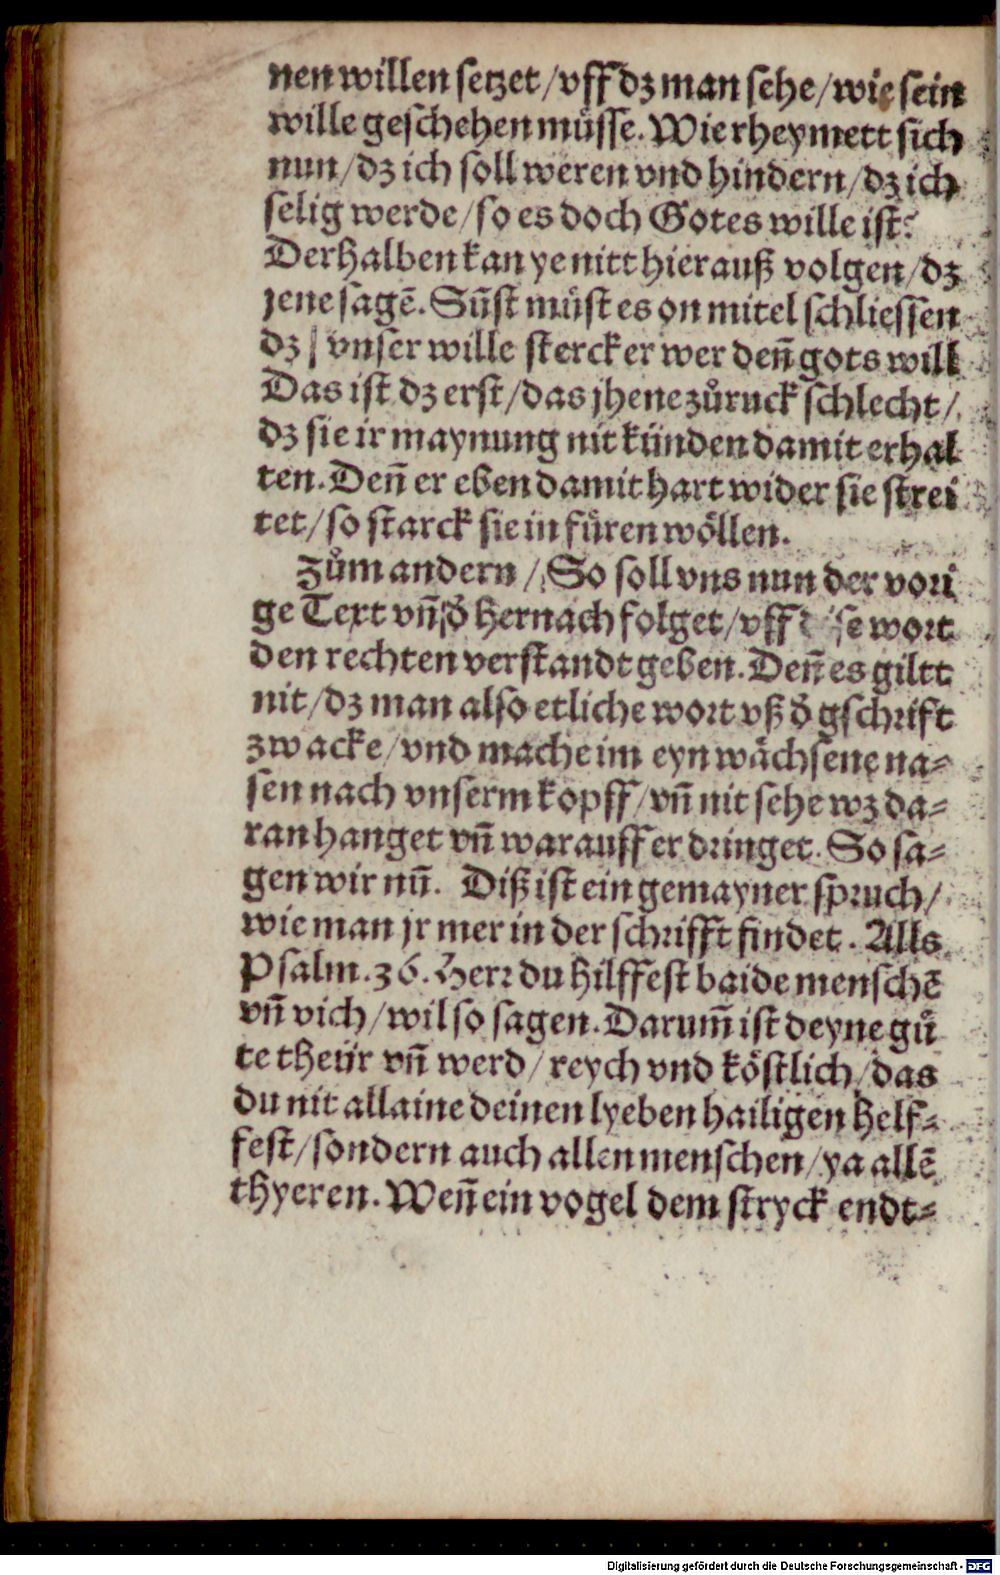 nen willen setzet/vff dz man sehe/wie sein
wille geschehen müsse. Wie rheymett sich
nun/dz ich soll weren vnd hindern/dz ich
selig werde/so es doch Gotes wille ist?
Derhalben kan ye nitt hierauß volgen/dz
jene sagē. Sūst müst es on mitel schliessen
dz / vnser wille stercker wer deñ gots will
Das ist dz erst/das jhene zůruck schlecht/
dz sie ir maynung nit künden damit erhal
ten. Deñ er eben damit hart wider sie strei
tet/so starck sie in füren wöllen.
Zům andern/ So soll vns nun der vori
ge Text vñ d̄ hernach folget/vff wort
den rechten verstandt geben. Deñ es giltt
nit/dz man also etliche wort vß d̄ gschrift
zwacke/vnd mache im eyn wächsene na⸗
sen nach vnserm kopff/vñ nit sehe wz da⸗
ran hanget vñ warauff er dringet. So sa⸗
gen wir nū. Diß ist ein gemayner spruch/
wie man jr mer in der schrifft findet. Alls
Psalm.36. Herr du hilffest baide menschē
vñ vich/wil so sagen. Darum̄ ist deyne gü
te theür vñ werd/reych vnd köstlich/das
du nit allaine deinen lyeben hailigen helf⸗
fest/sondern auch allen menschen/ya allē
thyeren. Weñ ein vogel dem stryck endt⸗
Digitalisierung gefördert durch die Deutsche Forschungsgemeinschaft - DFG